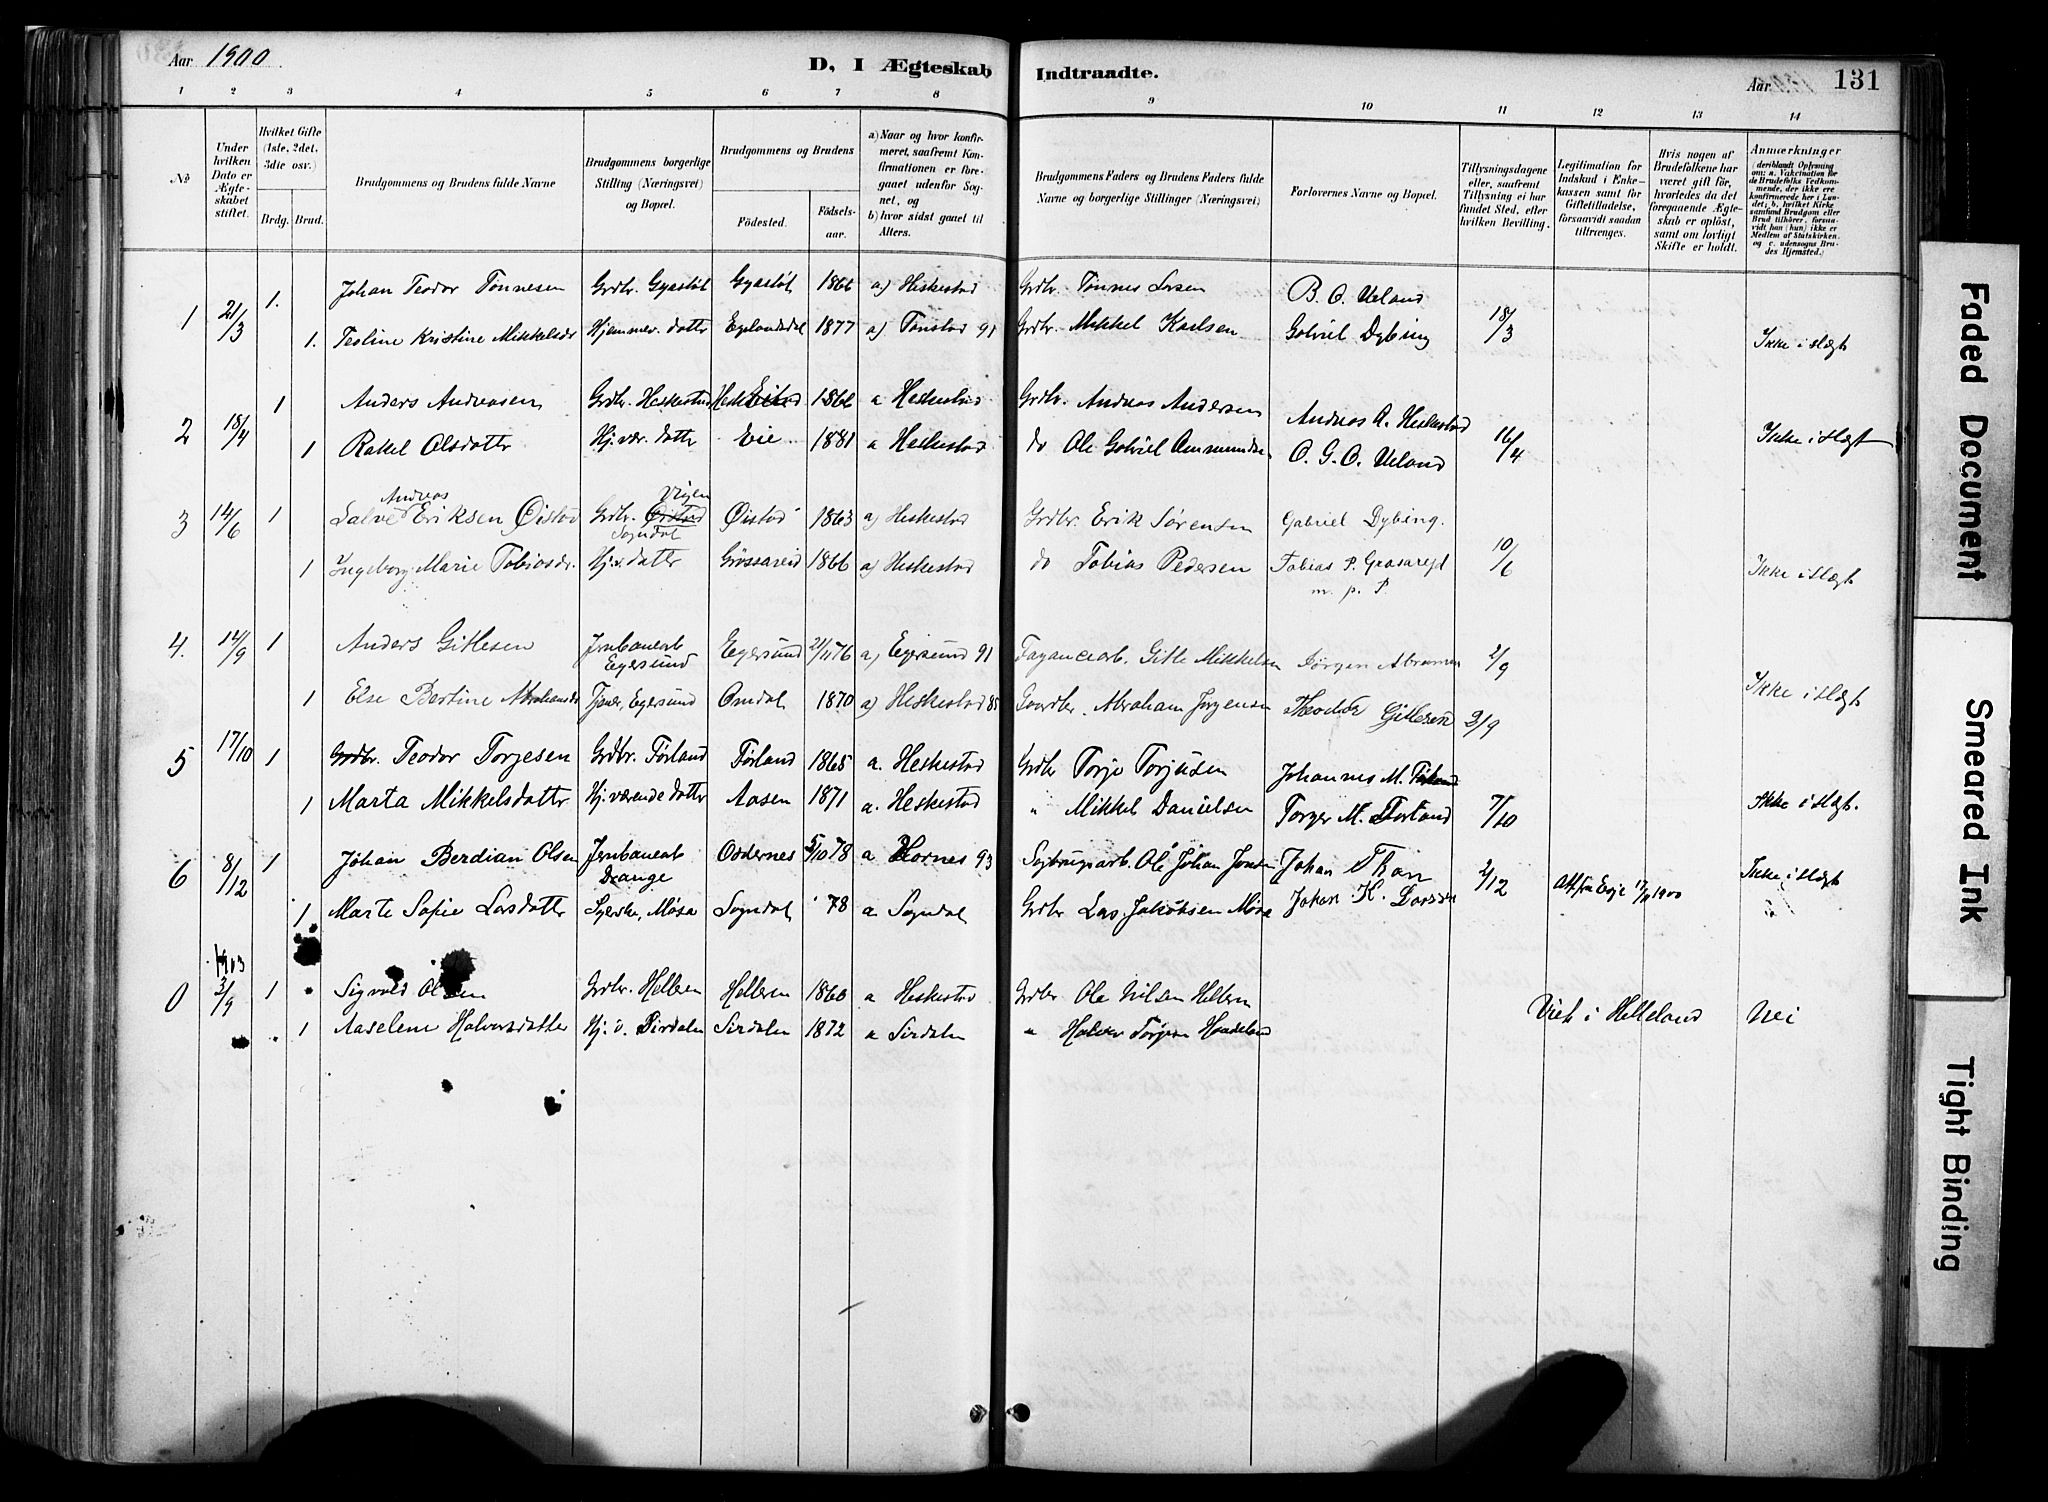 Aar 1900.
D, I Ægteskab Indtraadte.
Aar 131
1 2 3 4 5 6 7 8 9 10 11 12 13 14
No
Under hvilken Dato er Ægteskabet stiftet.
Hvilket Gifte (1ste, 2det, 3die osv.)
Brdg. Brud.
Brudgommens og Brudens fulde Navne
Brudgommens borgerlige Stilling (Næringsvei) og Bopæl.
Brudgommens og Brudens
Fødested. Fødselsaar.
a) Naar og hvor konfirmeret, saafremt Konfirmationen er foregaaet udenfor Sognet, og
b) hvor sidst gaaet til Alters.
Brudgommens Faders og Brudens Faders fulde Navne og borgerlige Stillinger (Næringsvei)
Forlovernes Navne og Bopæl.
Tillysningsdagene eller, saafremt Tillysning ei har fundet Sted, efter hvilken Bevilling.
Legitimation for Indskud i Enkekassen samt for Giftetilladelse, forsaavidt saadan tiltrænges.
Hvis nogen af Brudefolkene har været gift før, hvorledes da det foregaaende Ægteskab er opløst, samt om lovligt Skifte er holdt.
Anmærkninger (deriblandt Oplysning om: a. Vaccination for de Brudefolks Vedkommende, der ikke ere konfirmerede her i Landet; b. hvilket Kirkesamfund Brudgom eller Brud tilhører, forsaavidt han (hun) ikke er Medlem af Statskirken, og c. udensogns Brudes Hjemsted.)
1 21/3 1. Johan Teodor Tønnesen Grdbr. Gyastøl Gyastøl 1866 a) Heskestad Grdbr. Tønnes Larsen B. O. Ueland
1. Teoline Kristine Mikkelsdr Hjemmev. datter Egelandsdal 1877 a) Tonstad 91 Grdbr. Mikkel Karlsen Gabriel Dybing 18/3 Ikke i slægt
2 18/4 1 Anders Andreasen Grdbr. Heskestad 1866 a Heskestad Grdbr. Andreas Andersen Andreas A. Heskestad
1 Rakel Olsdatter Hj. vær. datter Eie 1881 a Heskestad do Ole Gabriel Ammundsen O. G. O. Ueland 16/4 Ikke i slægt
3 14/6 1 Salve Andreas Eriksen Øistad Grdbr. Øistad Sogndal Øistad 1863 a) Heskestad Grdbr. Erik Sørensen Gabriel Dybing.
1 Ingeborg Marie Tobiasdr. Hj. v. datter Grøssareid 1866 a) Heskestad do Tobias Pedersen Tobias P. Grøsareid m. p. P. 10/6 Ikke i slægt
4. 12/9 1 Anders Gitlesen Jernbanearb Egersund Egersund 21/11 76 a) Egersund 91 Fayancearb. Gitle Mikkelsen Jørgen Abramsen 2/9
1 Else Bertine Abrahamsdr Tjener, Egersund Omdal 1870 a) Heskestad 85 Gaardbr. Abraham Jørgensen Theodor Gitlesen 2/9 Ikke i slægt
5 17/10 1 Grdbr. Teodor Torjesen Grdbr. Førland Førland 1865 a. Heskestad Grdbr Torje Torjusen Johannes M.
1 Marta Mikkelsdatter Hj. værende datter Aasen 1871 a. Heskestad " Mikkel Danielsen Torger M. Førland 7/10 Ikke i slægt.
6 8/12 1 Johan Berdian Olsen Jernbanearb Drange Oddernes 5/10 78 a Hornes 93 Sagbrugsarb. Ole Johan Jensen Johan Thor
1 Marte Sofie Larsdatter Syerske, Møsa Sogndal 78 a Sogndal Grdbr Lars Jakobsen Møsa Johan K. Larsen 2/12 Att. fra Evje 17/11 1900 Ikke i slægt
1903
0 3/9 1 Sigvald Olsen Grdbr. Helleren Helleren 1860 a Heskestad Grdbr Ole Nilsen Helleren
1 Aaselene Halvorsdatter Hj. v. Sirdalen Sirdalen 1872 a Sirdalen " Halvor Torjesen Haadeland Viet i Helleland Nei
Faded Document
Smeared Ink
Tight Binding